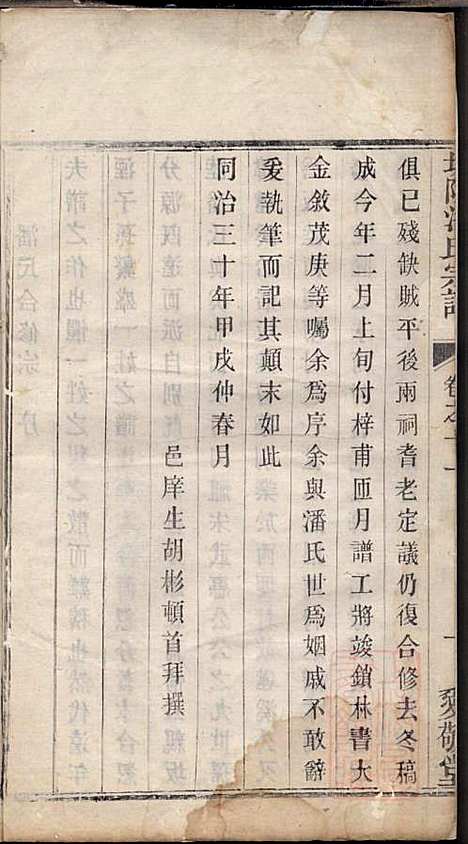 潘氏宗譜
卷之一
一
愛敬堂
俱已殘缺賊平後兩祠耆老定議仍復合修去冬稿
成今年二月上旬付梓甫匝月譜工將竣鎖林書大
金敘茂庚等囑余爲序余與潘氏世爲姻戚不敢辭
爰執筆而記其顛末如此
同治三十年甲戌仲春月
邑庠生胡彬頓首拜撰